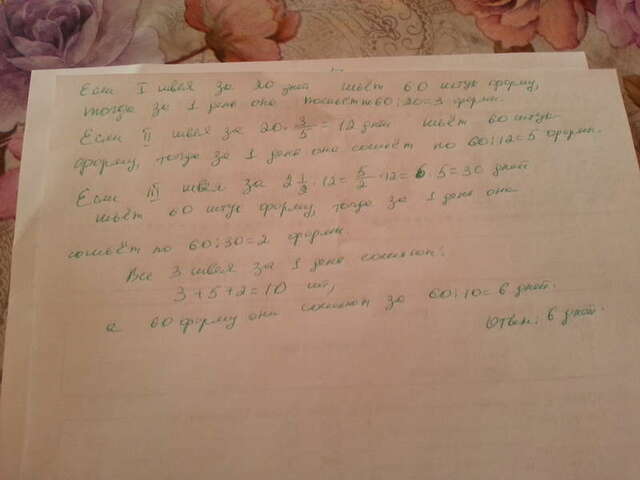 Если I швея за 20 дней шьёт 60 штук форму,
тогда за 1 день она пошьёт по 60:20=3 формы.
Если II швея за 20·3/5=12 дней шьёт 60 штук
форму, тогда за 1 день она сошьёт по 60:12=5 формы.
Если III швея за 2 1/2·12=5/2·12=6·5=30 дней
шьёт 60 штук форму, тогда за 1 день она
сошьёт по 60:30=2 формы.
Все 3 швеи за 1 день сошьют:
3+5+2=10 шт,
а 60 форму они сошьют за 60:10=6 дней.
Ответ: 6 дней.